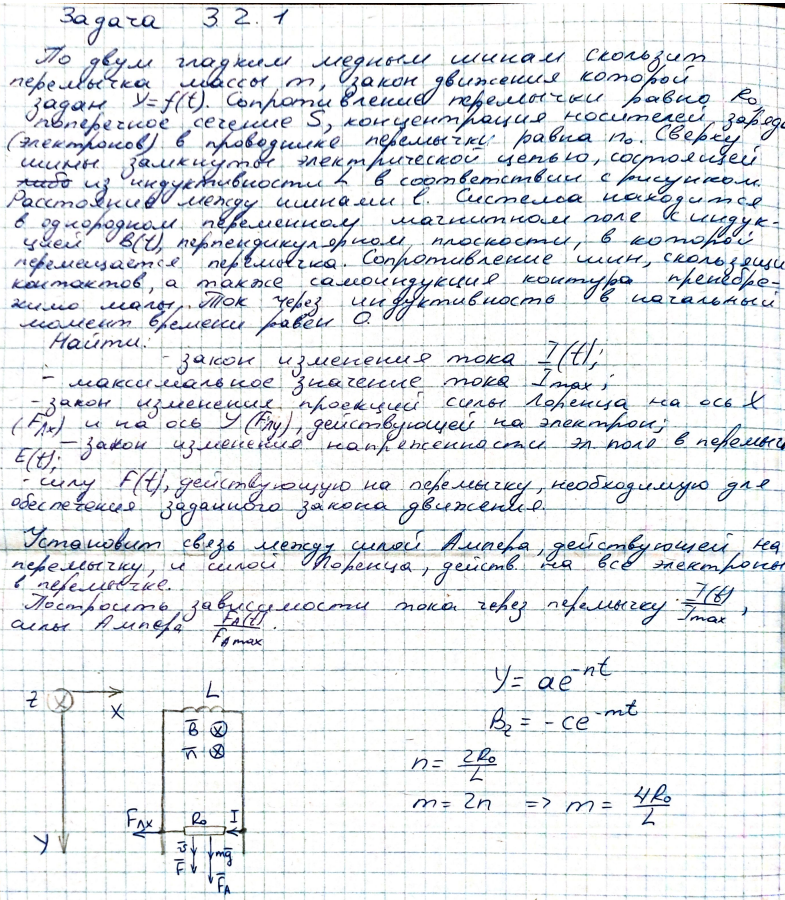 Задача 3.2.1
По двум гладким медным шинам скользит
перемычка массы m, закон движения которой
задан y=f(t). Сопротивление перемычки равно R₀,
поперечное сечение S, концентрация носителей заряда
(электронов) в проводнике перемычки равна n₀. Сверху
шины замкнуты электрической цепью, состоящей
либо из индуктивности L в соответствии с рисунком.
Расстояние между шинами l. Система находится
в однородном переменном магнитном поле с индук-
цией B(t), перпендикулярном плоскости, в которой
перемещается перемычка. Сопротивление шин, скользящих
контактов, а также самоиндукция контура пренебре-
жимо малы. Ток через индуктивность в начальный
момент времени равен 0.
Найти:
- закон изменения тока I(t);
- максимальное значение тока Imax;
- закон изменения проекций силы Лоренца на ось X
(Fлx) и на ось Y (Fлy), действующей на электрон;
- закон изменения напряженности эл. поле в перемыч
E(t);
- силу F(t), действующую на перемычку, необходимую для
обеспечения заданного закона движения.
Установит связь между силой Ампера, действующей на
перемычку, и силой Лоренца, действ на все электроны
в перемычке.
Построить зависимости тока через перемычку I(t)/Imax,
силы Ампера FA(t)/FAmax.
z X
Y
L
B̄
n̄
Fлx R₀ I
v̄ mḡ
F̄ F̄A
y = ae^-nt
Bz = -ce^-mt
n = 2R₀/L
m = 2n => m = 4R₀/L